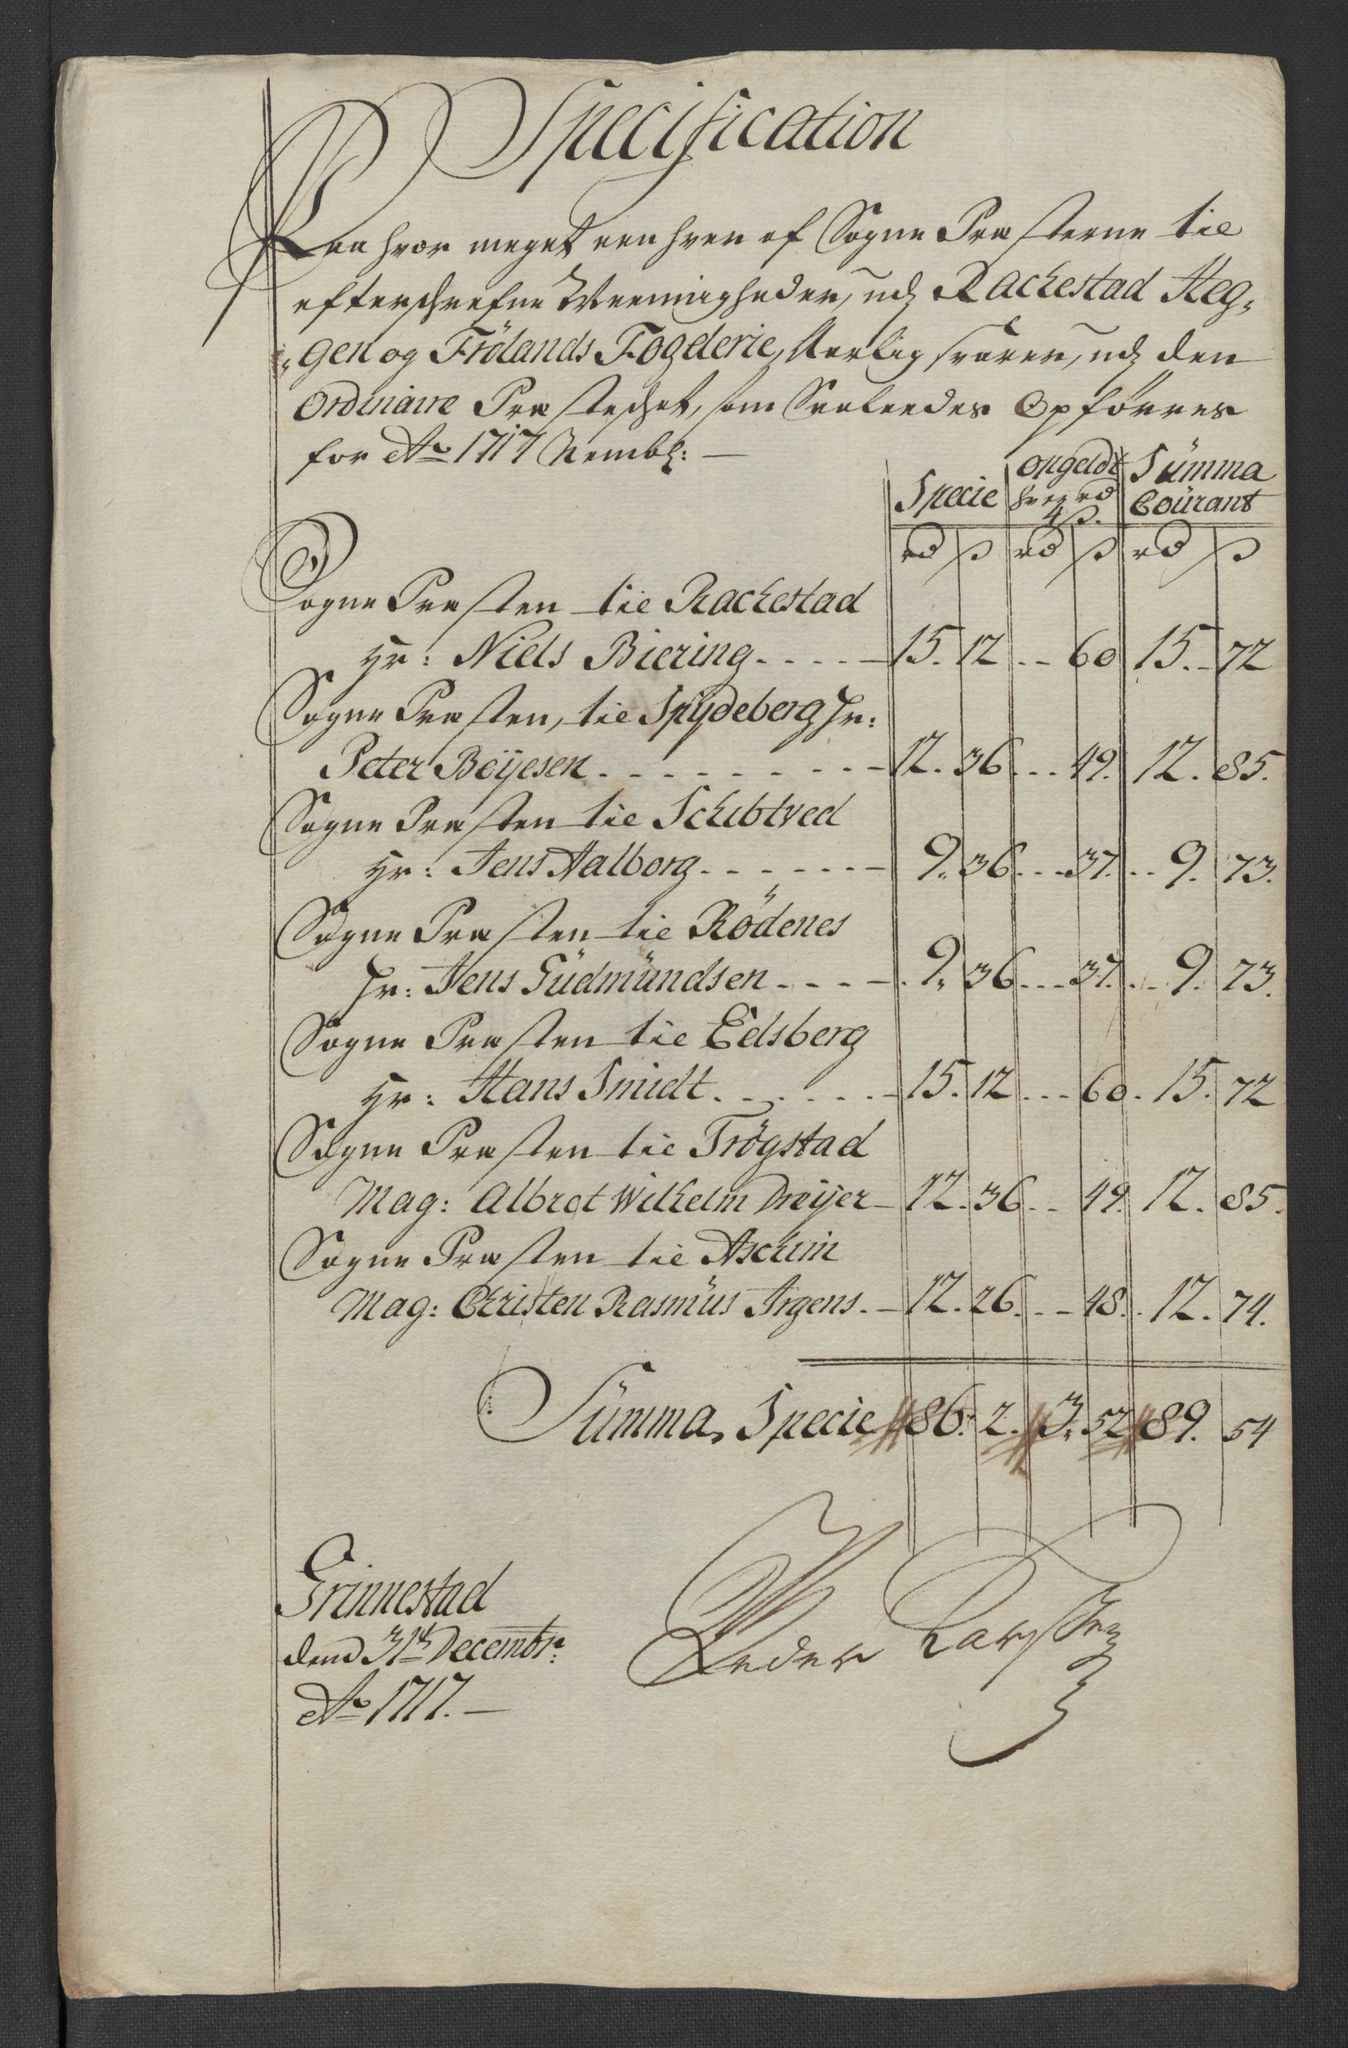 Specification
Paa hvor meget een hver af Sogne Præsterne til
efterschrefne Meenigheder, udj Rachestad Heg-
gen og Frölands Fogderie, Aarlig svarer, udj den
Ordinaire Præsteschat, som Saaleedes Opförres
for Ao 1717 Nembl: —
Specie Opgeldt Sümma
hver rd 4 ß. Courant
rd ß rd ß rd ß
Sogne Præsten til Rachestad
Hr: Niels Biering 15. 12 60 15. 72
Sogne Præsten, til Spydeberg Hr:
Peter Beÿesen 12. 36 49. 12. 85.
Sogne Præsten til Schibtved
Hr: Jens Aalborg 9. 36 37. 9. 73.
Sogne Præsten til Rödenes
Hr: Jens Güdmündsen 9. 36 37. 9. 73.
Sogne Præsten til Eidsberg
Hr: Hans Smidt 15. 12 60. 15. 72
Sogne Præsten til Trögstad
Mag: Albret Wilhelm Dreÿer 12. 36 49. 12. 85.
Sogne Præsten til Aschim
Mag: Christen Rasmüs Argens 12. 26. 48. 12. 74.
Sümma, Specie 86. 2. 3. 52 89. 54
Grinnestad
dend 31te Decembr:
Ao 1717. —
Peder Larssen